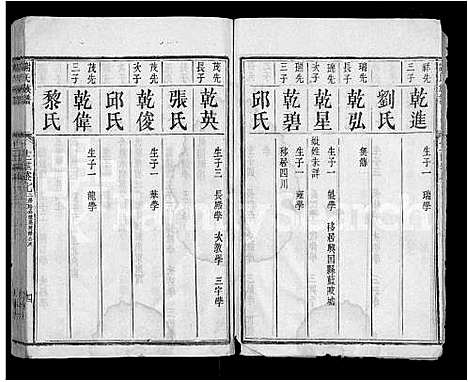 祥先
三子
乾進
生子一 瑞學
劉氏
瑞先
長子
乾弘
無傳
瑞先
次子
乾星
生子一 魁學 移居興國縣藍陂墟
妣姓未詳
瑞先
三子
乾碧
生子一 雍學
移居四川
邱氏
茂先
長子
乾英
生子三 長殿學 次教學 三宇學
張氏
茂先
次子
乾俊
生子一 華學
邱氏
茂先
三子
乾偉
生子二 龍學
黎氏
四